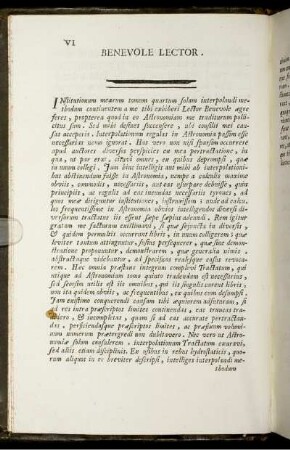 VI
BENEVOLE LECTOR.
INstitutionum mearum tomum quartum solam interpolandi me-
thodum continentem a me tibi exhiberi Lector Benevole aegre
feres, propterea quod in eo Astronomiam me traditurum polli-
citus sum. Sed mihi desines succensere, ubi consilii mei cau-
sas acceperis. Interpolationum regulas in Astronomia passim esse
necessarias nemo ignorat. Has vero non nisi sparsim occurrere
apud auctores diversos perspicies ex mea pertractatione, in
qua, ut par erat, citavi omnes, ex quibus deprompsi, quae
in unum collegi. Jam hinc intelligis aut mihi ab interpolationi-
bus abstinendum fuisse in Astronomia, nempe a calculis maxime
obviis, commodis, necessariis, aut eas usurpare debuisse, quin
principiis, ac regulis ad eas ineundas necessariis tyrones, ad
quos meae diriguntur institutiones, instruerem; unde ad calcu-
los frequentissime in Astronomia obvios intelligendos diversi di-
versorum tractatus iis essent saepe saepius adeundi. Rem igitur
gratam me facturum existimavi, si quae sejuncta in diversis,
& quidem permultis occurrunt libris, in unum colligerem; quae
leviter tantum attinguntur, fusius persequerer, quae sine demon-
stratione proponuntur, demonstrarem, quae generalia nimis
abstractaque videbantur, ad speciliora realesque casus revoca-
rem. Haec omnia praestans integrum complevi Tractatum, qui
utique ad Astronomiam tomo quinto tradendam est necessarius,
sed seorsim utilis est iis omnibus, qui iis singulis carent libris,
non ita quidem obviis, ac frequentibus, ex quibus eum desumpsi.
Jam nactime conquerendi causam tibi aequiorem adfuturam, si
ad res intra praescriptos limites continendas, eas tenues tra-
didero, & incompletas, quam si ad eas accurate pertractandas,
perficiendasque praescriptos limites, ac pretium volumi-
num numerum praetergredi non dubitavero. Nec vero ut Astro-
nomiae solum consulerem, interpolationum Tractatum exaravi,
sed aliis etiam disciplinis. En usibus in rebus hydrostaticis, quo-
rum aliquot in eo breviter descripsi, intelliges interpolandi me-
thodum